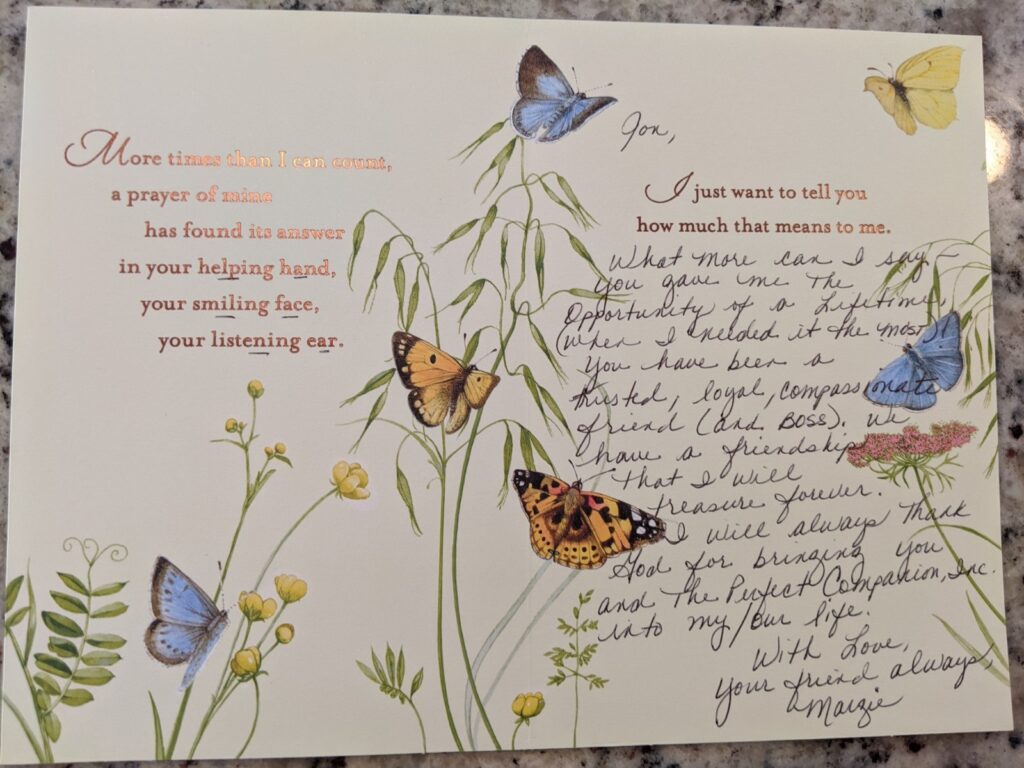 More times than I can count,
a prayer of mine
has found its answer
in your helping hand,
your smiling face,
your listening ear.
Jon,
I just want to tell you
how much that means to me.
What more can I say –
you gave me the
Opportunity of a Lifetime,
(when I needed it the most)!
You have been a
trusted, loyal, compassionate
friend (and BOSS). We
have a friendship
that I will
treasure forever.
I will always thank
God for bringing you
and The Perfect Companion, Inc.
into my/our life.
With Love,
Your friend always,
Marzie